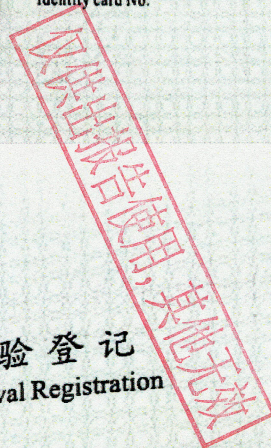 Identity card No.
仅供出报告使用,其他无效
验登记
val Registration